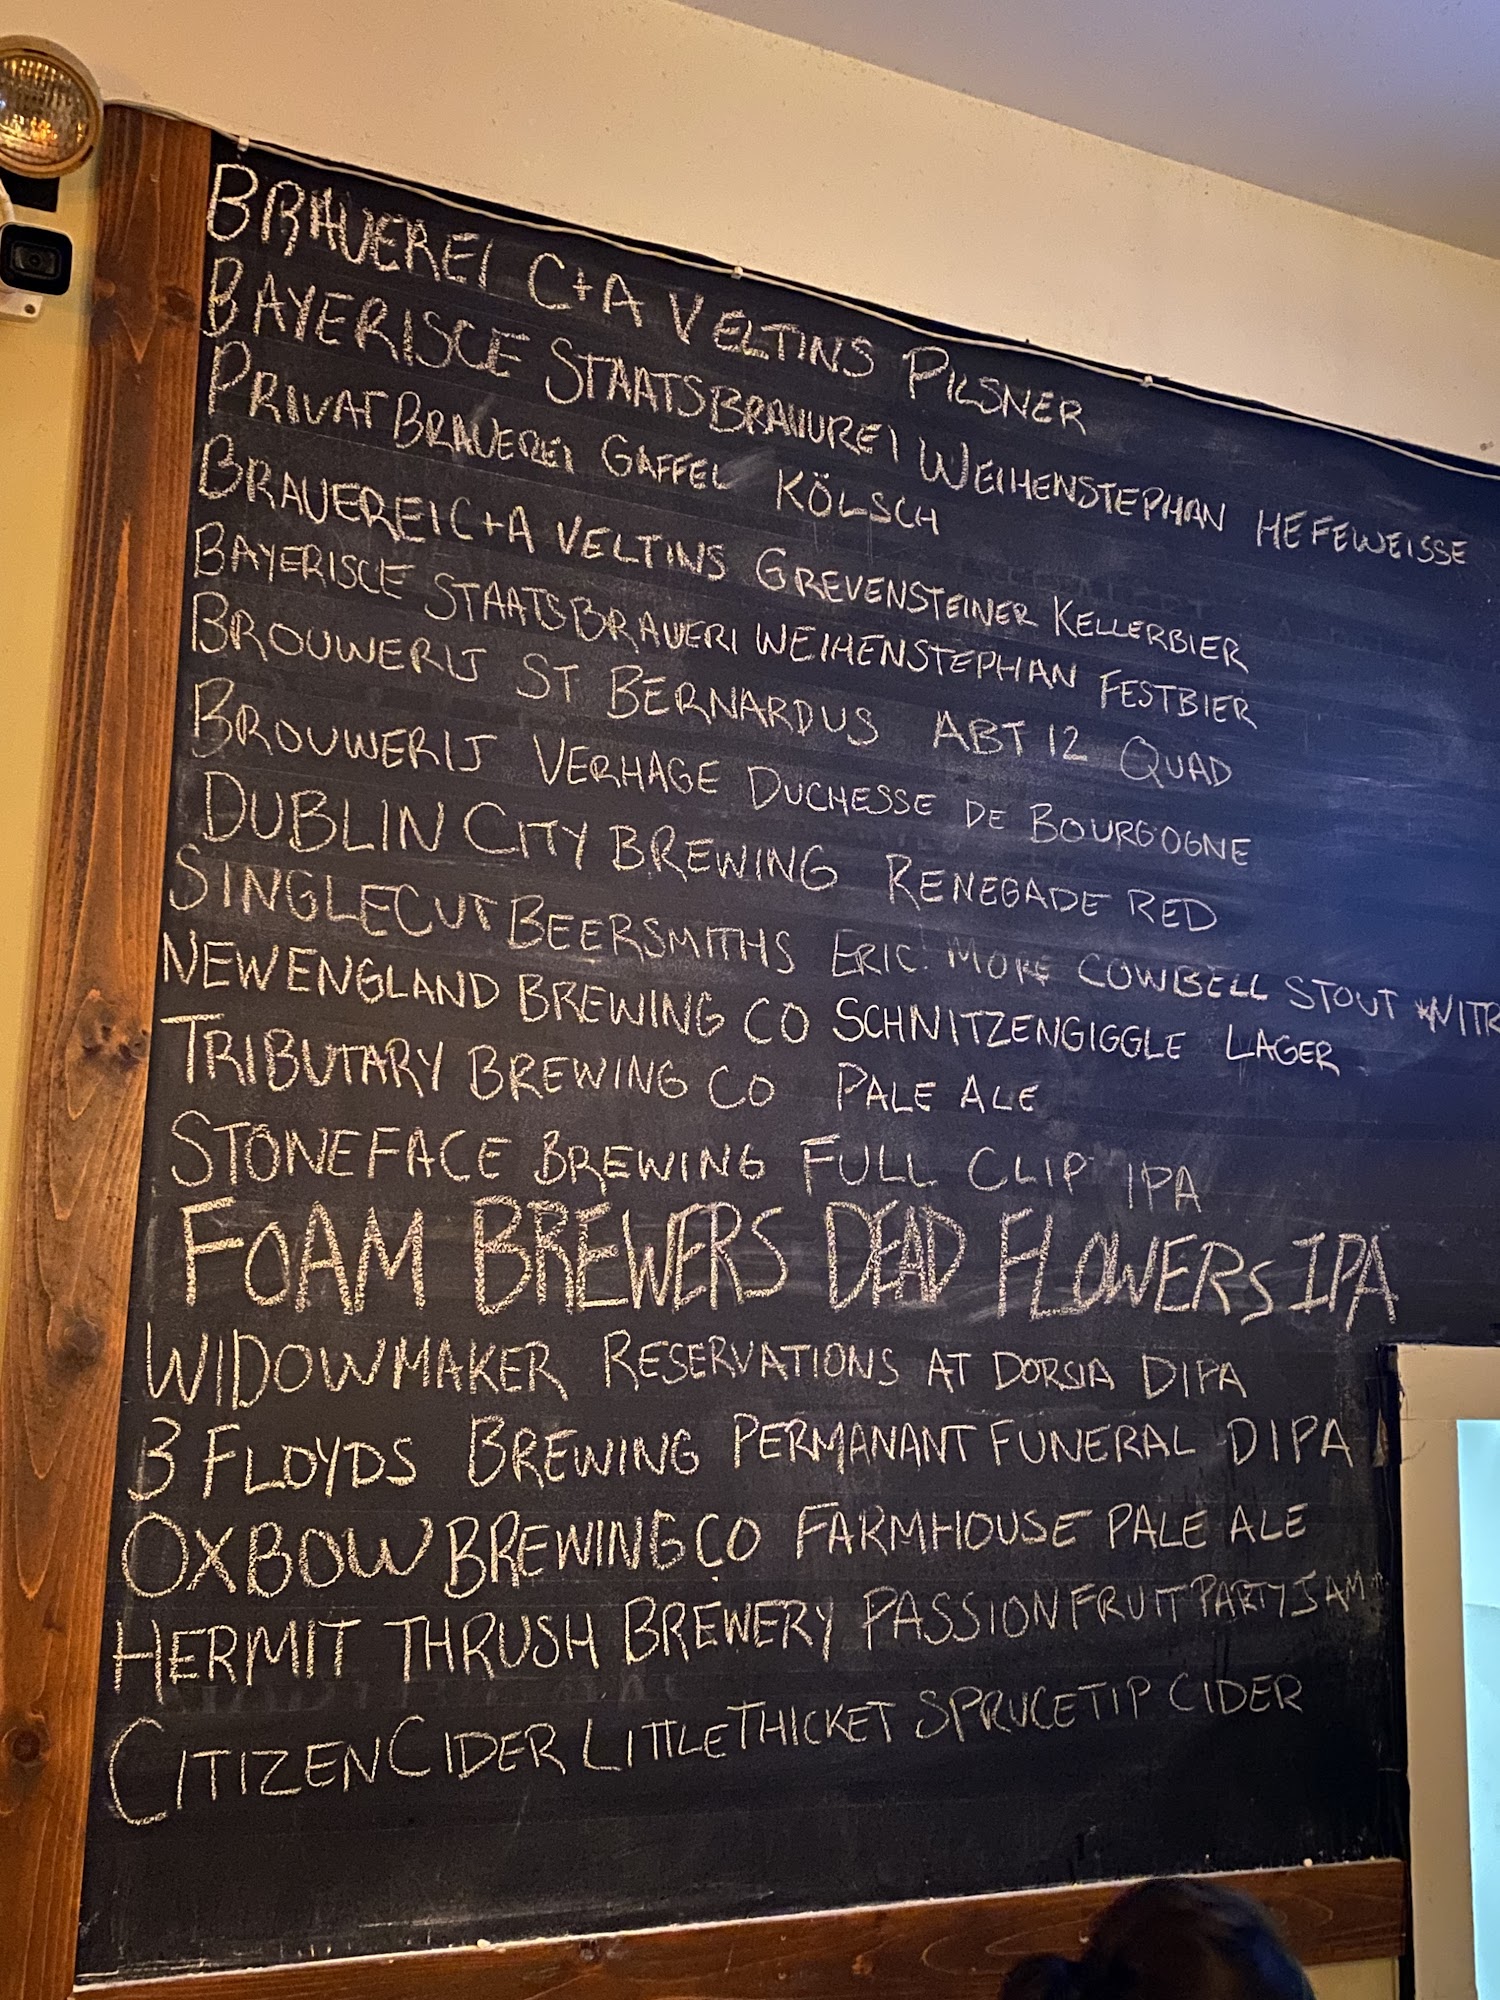 BRAUEREI C+A VELTINS PILSNER
BAYERISCE STAATSBRAUUREI WEIHENSTEPHAN HEFEWEISSE
PRIVATBRAUEREI GAFFEL KÖLSCH
BRAUEREI C+A VELTINS GREVENSTEINER KELLERBIER
BAYERISCE STAATSBRAUERI WEIHENSTEPHAN FESTBIER
BROUWERIJ ST BERNARDUS ABT 12 QUAD
BROUWERIJ VERHAGE DUCHESSE DE BOURGOGNE
DUBLIN CITY BREWING RENEGADE RED
SINGLECUT BEERSMITHS ERIC! MORE COWBELL STOUT *NITR
NEW ENGLAND BREWING CO SCHNITZENGIGGLE LAGER
TRIBUTARY BREWING CO PALE ALE
STONEFACE BREWING FULL CLIP IPA
FOAM BREWERS DEAD FLOWERS IPA
WIDOWMAKER RESERVATIONS AT DORSIA DIPA
3 FLOYDS BREWING PERMANANT FUNERAL DIPA
OXBOW BREWING CO FARMHOUSE PALE ALE
HERMIT THRUSH BREWERY PASSIONFRUIT PARTY JAM
CITIZEN CIDER LITTLE THICKET SPRUCE TIP CIDER